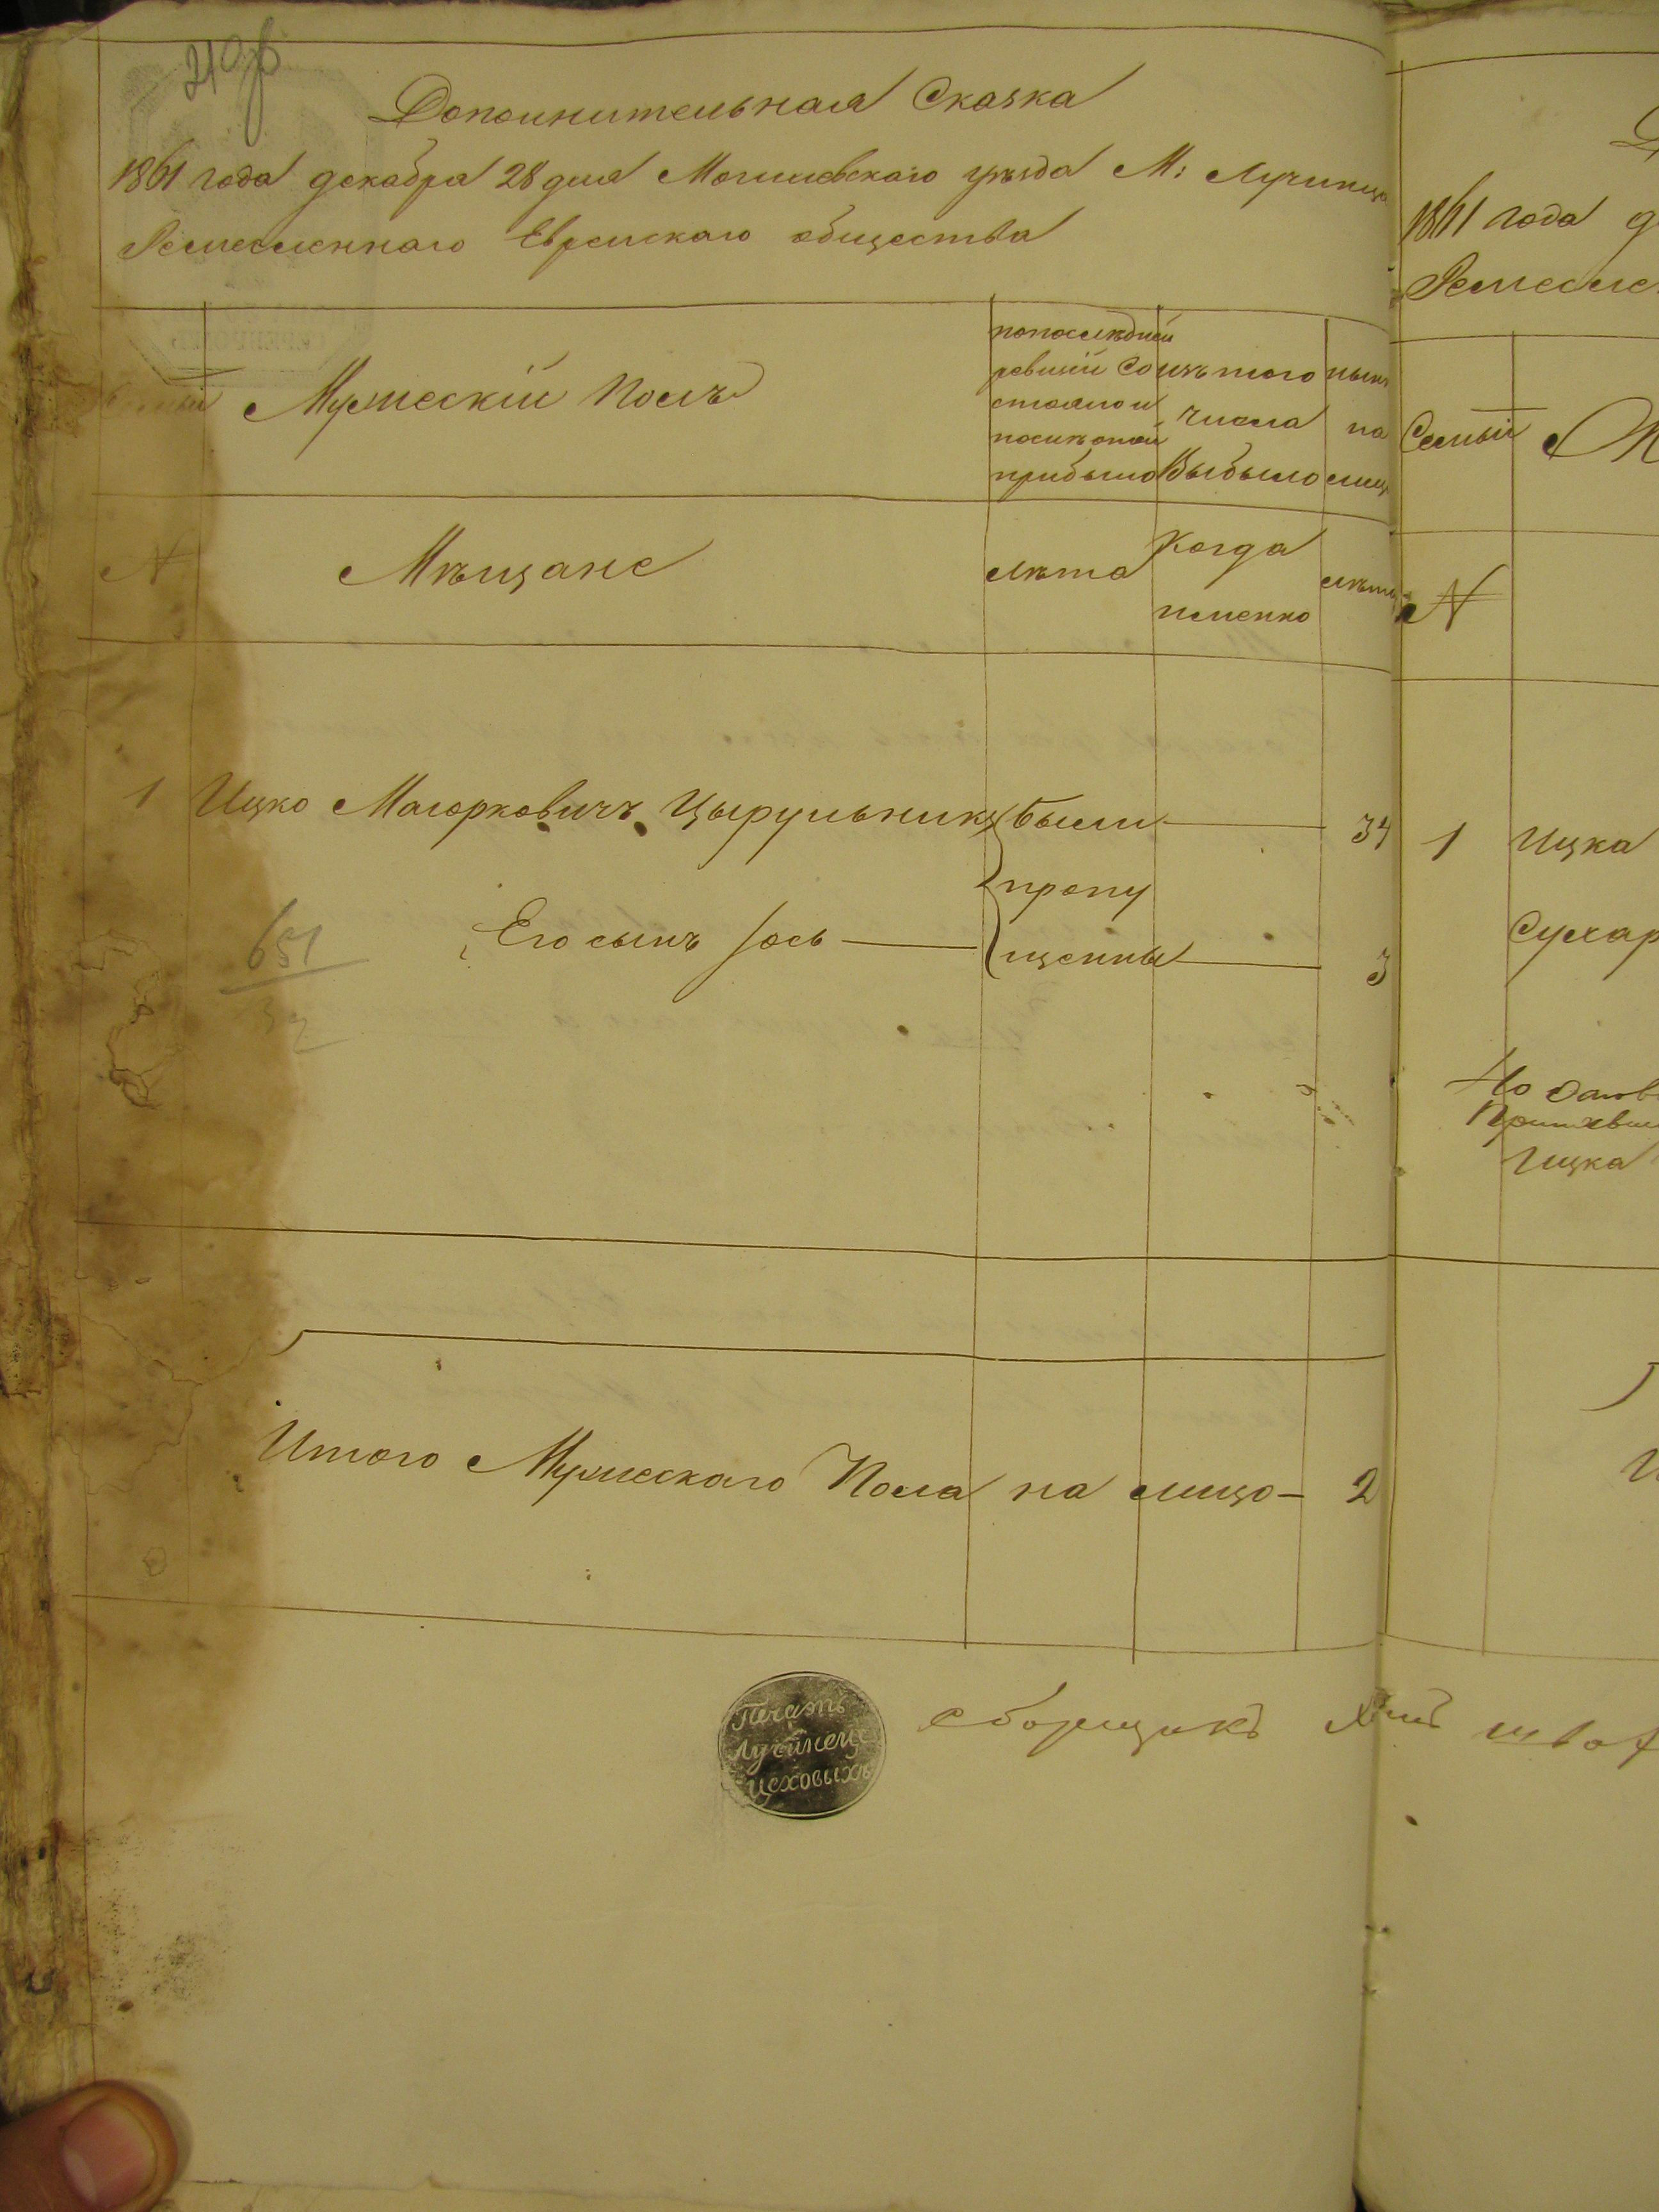 210 об
Дополнительная Сказка
1861 года декабря 28 дня Могилевскаго уѣзда М: Лучинца
Ремесленнаго Еврейскаго общества
Семьи
Мужескій Полъ
попослѣдней
ревизіи Со
стояло и
послѣ оной
прибыло
изъ того
числа
Выбыло
нынѣ
на
лицо
№
Мѣщане
лѣта
Когда
именно
лѣта
1 Ицко Маіорковичъ Цырульникъ были 34
пропу
Его сынъ Іось щенны 3
651
Итого Мужескаго Пола на лицо 2
Печать
Лучинец
цеховыхъ
сборщикъ
1861 года д
Ремесле
Семьи М
№
1 Ицка
Сухар
Ицка